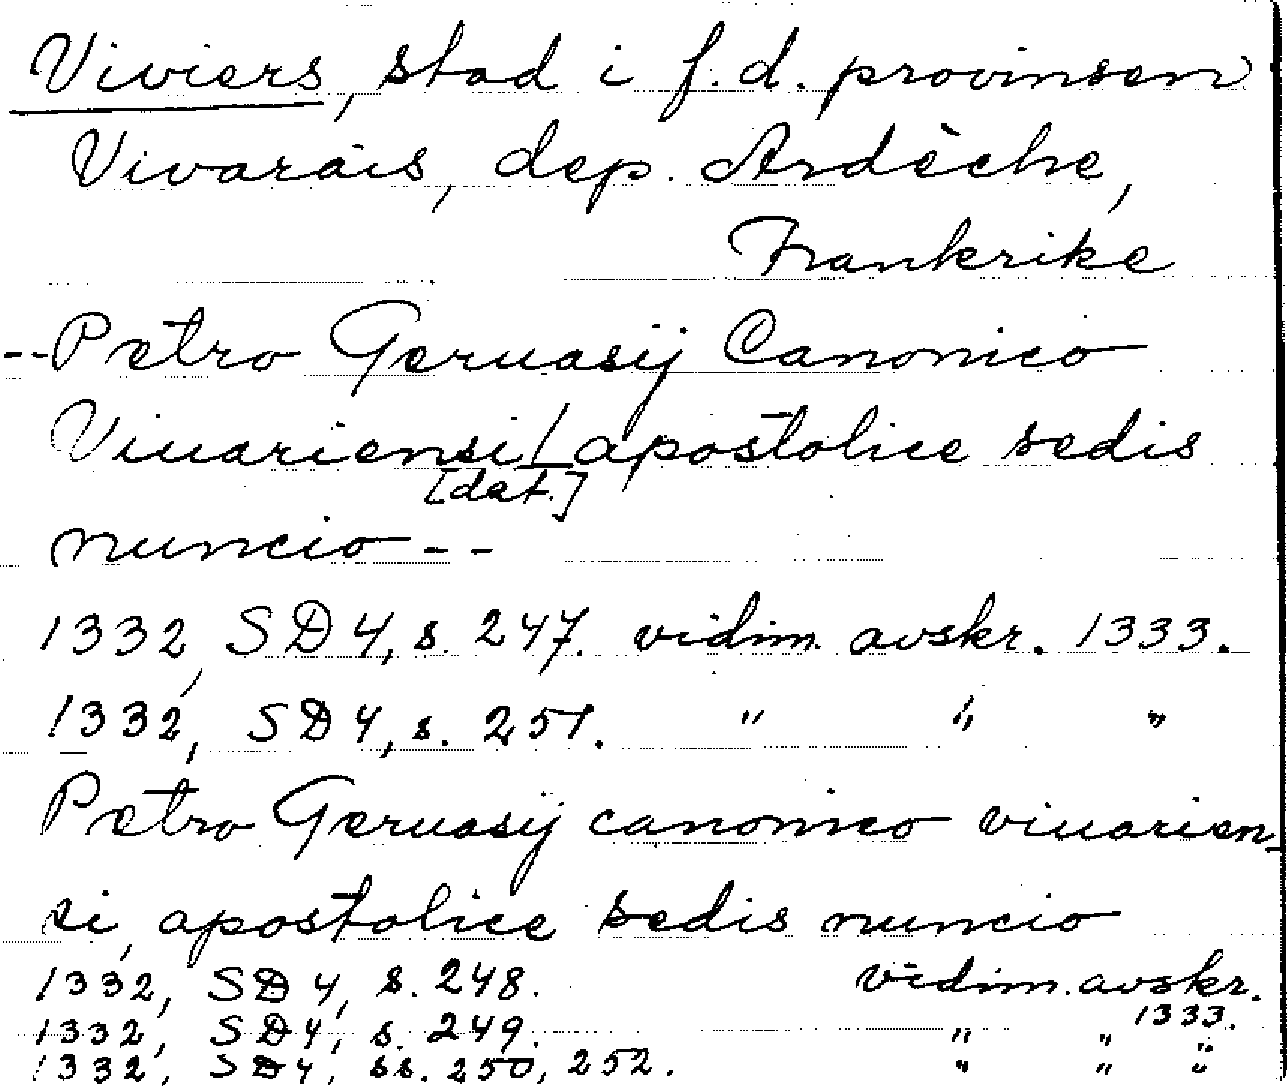 Viviers, stad i f.d. provinsen
Vivarais, dep. Ardèche,
Frankrike
--Petro Geruasij Canonico
Viuariensi / apostolice sedis
[dat.]
nuncio--
1332, SD 4, s. 247. vidim. avskr. 1333.
1332, SD 4, s. 251. " " "
Petro Geruasij canonico viuarien-
si, apostolice sedis nuncio
1332, SD 4, s. 248. vidim. avskr.
1333.
1332, SD 4, s. 249. " " "
1332, SD 4, ss. 250, 252. " " "